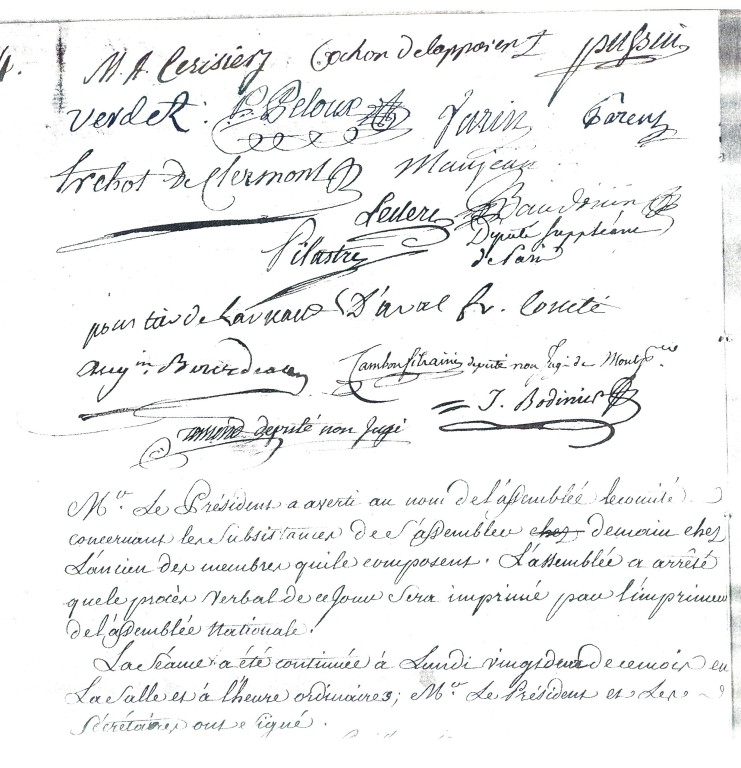 4.
M. A. Cerisier Cochon De lapparent
verdet. Pre. Peloux Turin
trehot De Clermont Maujean
Leclerc Baudouin
Pilastre Député Suppléant
de Paris
pour tier de D'aval fr. Comté
aug.in Bourdeau député non Jugé de
J. Bodinier
député non Jugé
Mr. Le Président a averti au nom de l'assemblée le comité
concernant les Subsistances de l'assemblée chez demain chez
l'ancien des membres qui le composent. L'assemblée a arrêté
que le procès verbal de ce jour sera imprimé par l'imprimeur
de l'assemblée Nationale.
La Séance a été continuée à Lundi vingt deux de ce mois en
La Salle et à l'heure ordinaires; Mr. Le Président et Les
Sécrétaires ont signé.